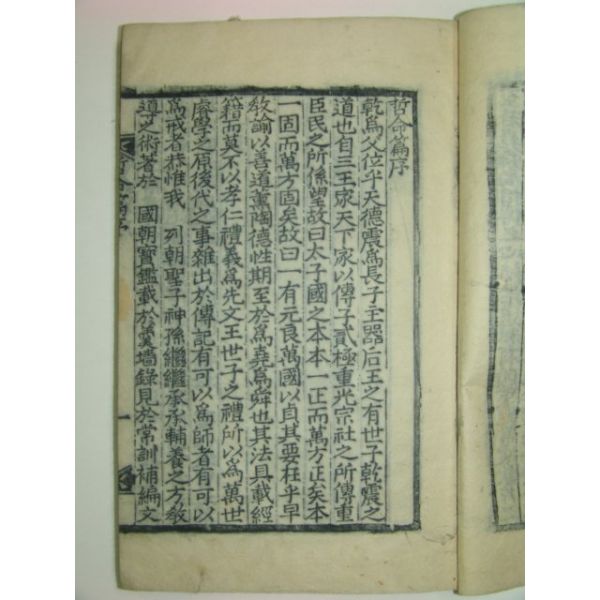 哲命篇序
乾爲父位乎天德震爲長子主器后王之有世子乾震之
道也自三王家天下家以傳子貳極重光宗社之所傳重
臣民之所係望故曰太子國之本本一正而萬方正矣本
一固而萬方固矣故曰一有元良萬國以貞其要在乎早
敎諭以善道薰陶德性期至於爲堯爲舜也其法具載經
籍而莫不以孝仁禮義爲先文王世子之禮所以爲萬世
廢學之原後代之事雜出於傳記有可以爲師者有可以
爲戒者恭惟我 列朝聖子神孫繼繼承承輔養之方敎
導之術著於 國朝寶鑑載於羹墻錄見於常訓補編文
哲命篇序
一